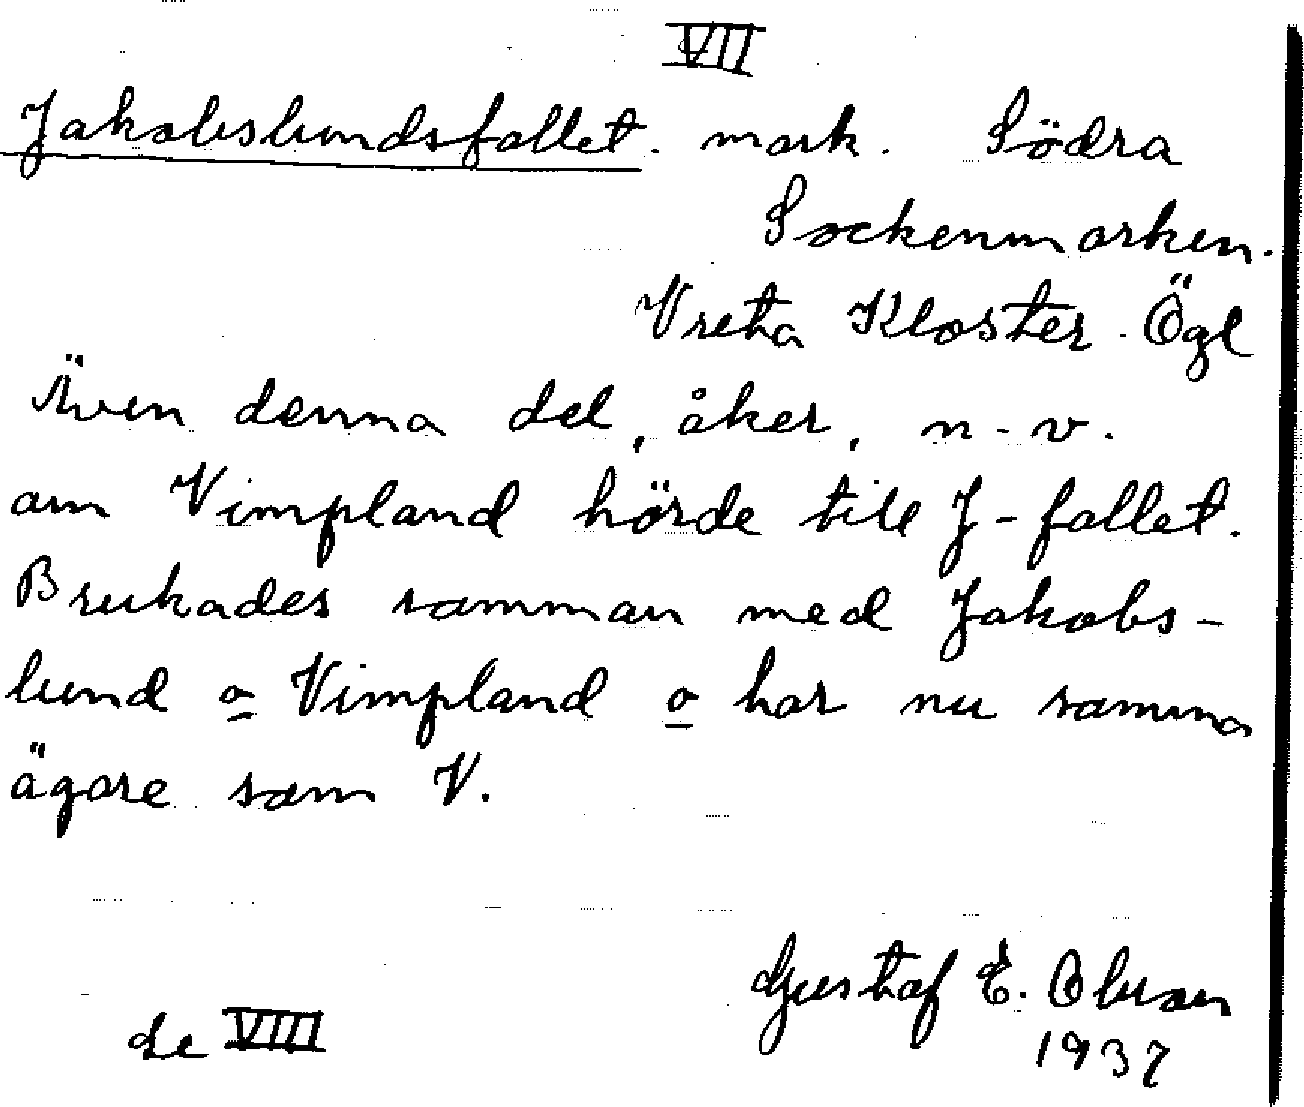 VII
Jakobslundsfallet. mark. Södra
Sockenmarken.
Vreta Kloster. Ögl
Även denna del, åker, n-v.
om Vimpland hörde till J-fallet.
Brukades samman med Jakobs-
lund o Vimpland o har nu samma
ägare som V.
Gustaf E. Olsson
se VIII
1937